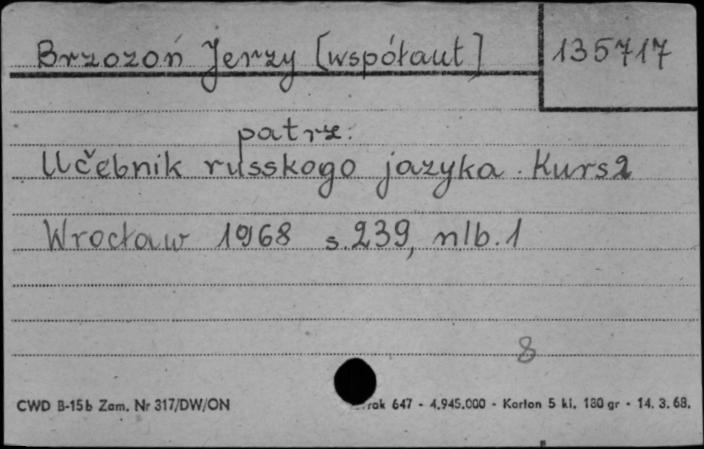 Brzozoń Jerzy [współaut]
135717
patrz:
Učebnik russkogo jazyka. Kurs 2
Wrocław 1968 s. 239, nlb. 1
8
CWD B-15b Zam. Nr 317/DW/ON
647 - 4.945.000 - Karton 5 kl. 180 gr - 14. 3. 68.